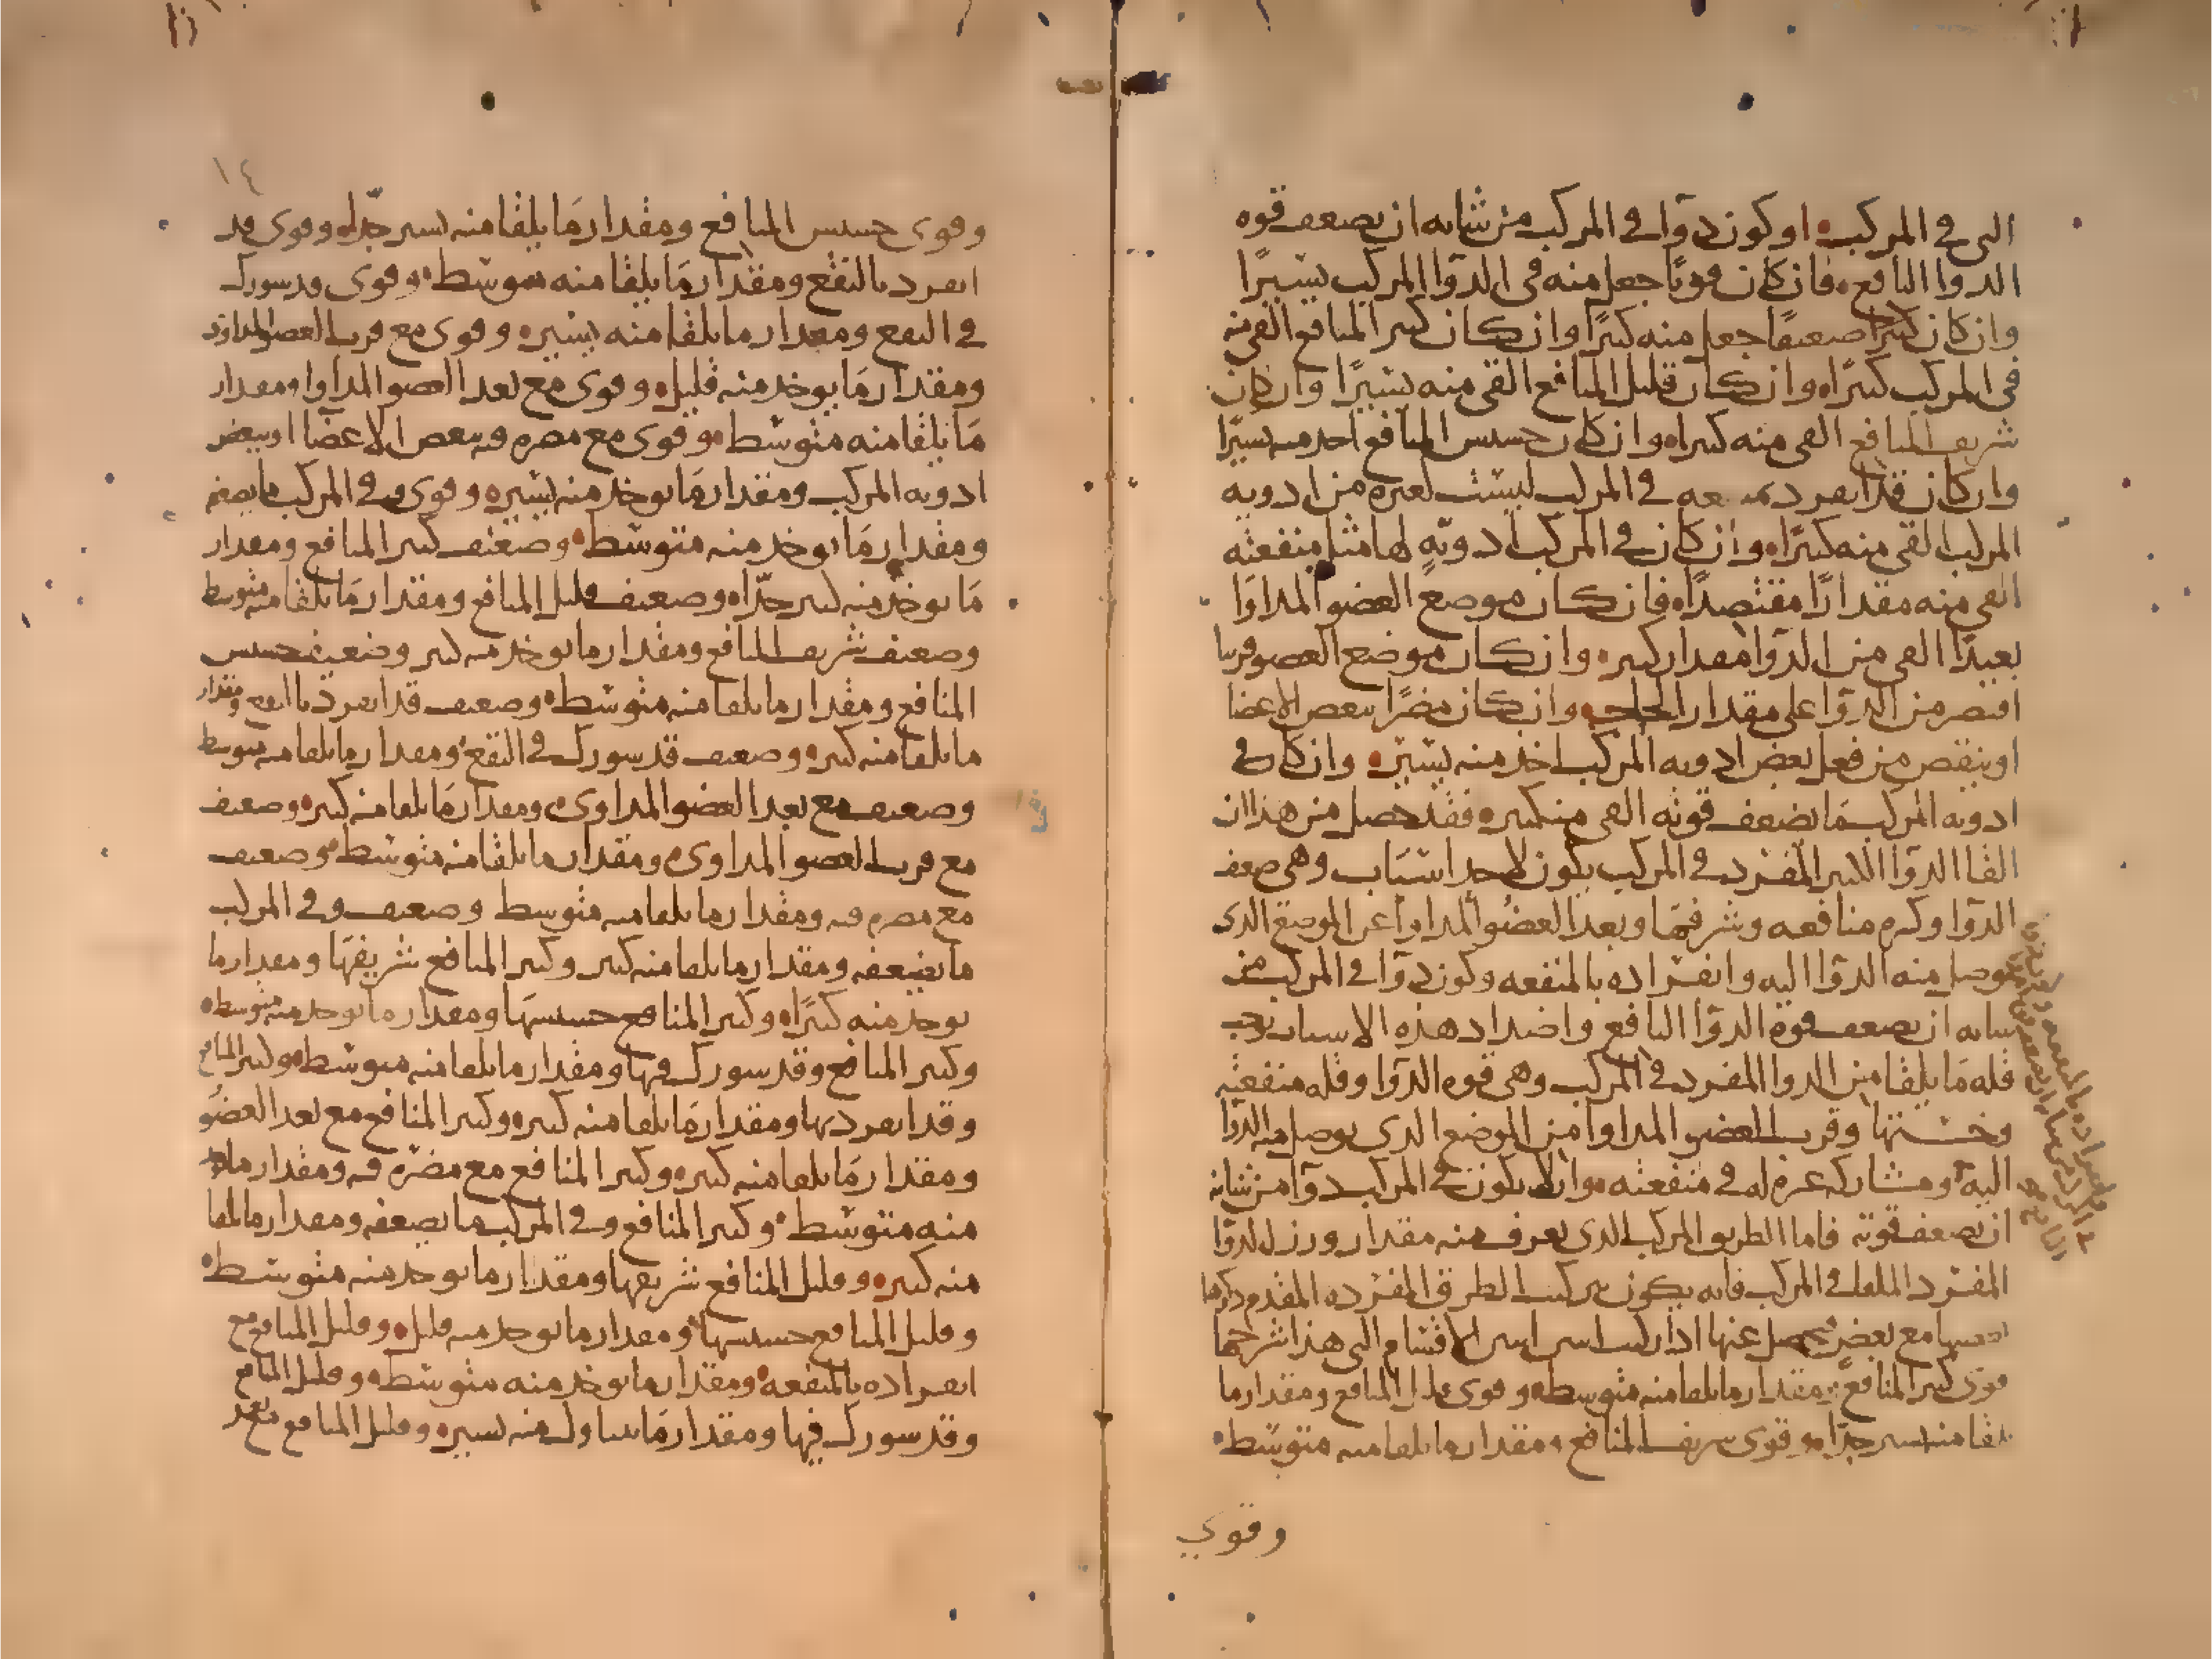 التى فى المركب او كون دوآ فى المركب من شانه ان يضعف قوه
الدوا النافع فان كان قويًا جعل منه فى الدوآ المركب يسيرًا
وان كان كثيرًا ضعيفًا جعل منه كثيرًا وان كان كثير المنافع القى منه
فى المركب كثيرًا وان كان قليل المنافع القى منه يسيرًا وان كان
شريف المنافع القى منه كثيرا وان كان خسيس المنافع اخذ منه يسيرًا
وان كان قد انفرد بمنفعه فى المركب ليست لغيره من ادويه
المركب القى منه كثيرًا وان كان فى المركب ادويةٍ لها مثل منفعته
القى منه مقدارًا مقتصدًا فان كان موضع العضو المداوَا
بعيدًا القى من الدوآ مقدار كثير وان كان موضع العضو قريبا
اقتصر من الدوآ على مقدار الحاجه وان كان مضرًا ببعض الاعضا
او ينقص من فعل بعض ادويه المركب اخذ منه يسير وان كان فى
ادويه المركب مَا يضعف قوته القى منه كثير فقد حصل من هذا ان
القا الدوآ الكثير المفرد فى المركب يكون لاحد اسبَاب وهى ضعف
الدوآ وكثره منافعه وشرفهَا وبعد العضو المداوا عن الموضع الذى
يوصل منه الدوآ اليه وانفراده بالمنفعه وكون دوآ فى المركب من
شانه ان يضعف قوه الدوآ النافع واضداد هذه الاسباب توجب
قله مَا يلقا من الدوا المفرد فى المركب وهى قوه الدوآ وقله منفعته
وخسّتها وقرب العضو المداوا من الموضع الذى يوصل منه الدوآ
اليه ومشاركه غيره له فى منفعته وان لا يكون فى المركب دوآ من شانه
ان يضعف قوته فاما الطريق المركب الذى يعرف منه مقدار وزن الدوآ
المفرد الملقا فى المركب فانه يكون بتركيب الطرق المفرده المقدم ذكرها
بعضها مع بعض يحصل عنها اذا ركبت اثنين اثنين الاقسام التى هذا شرحها
قوى كثير المنافع ومقدار ما يلقا منه متوسط وقوى قليل المنافع ومقدار ما
يلقا منه يسير جدًا وقوى شريف المنافع ومقدار ما يلقا منه متوسط
وقوي
١٤
وقوى خسيس المنافع ومقدار مَا يلقا منه يسير جدّا وقوى قد
انفرد بالنفع ومقدار مَا يلقا منه متوسط وقوى قد شورك
فى النفع ومقدار ما يلقا منه يسير وقوى مع قرب العضو المداوى
ومقدار مَا يوخذ منه قليل وقوى مع بعد العضو المداوا ومقدار
مَا يلقا منه متوسط وقوى مع مضره فيه ببعض الاعضَا او ببعض
ادويه المركب ومقدار مَا يوخذ منه يسير وقوى وفى المركب ما يضعفه
ومقدار مَا يوخذ منه متوسط وضعيف كثير المنافع ومقدار
مَا يوخذ منه كثير جدّا وضعيف قليل المنافع ومقدار مَا يلقا منه متوسط
وضعيف شريف المنافع ومقدار ما يوخذ منه كثير وضعيف خسيس
المنافع ومقدار ما يلقا منه متوسط وضعيف قد انفرد بالنفع ومقدار
ما يلقا منه كثير وضعيف قد شورك فى النفع ومقدار ما يلقا منه متوسط
وضعيف مع بعد العضو المداوى ومقدار مَا يلقا منه كثير وضعيف
مع قرب العضو المداوى ومقدار ما يلقا منه متوسط وضعيف
مع مضره فيه ومقدار ما يلقا منه متوسط وضعيف وفى المركب
ما يضعفه ومقدار ما يلقا منه كثير وكثير المنافع شريفهَا ومقدار ما
يوخذ منه كثيرًا وكثير المنافع خسيسهَا ومقدار ما يوخذ منه متوسط
وكثير المنافع وقد شورك فيها ومقدار ما يلقا منه متوسط وكثير المنافع
وقد انفرد بها ومقدار مَا يلقا منه كثير وكثير المنافع مع بعد العضو
ومقدار مَا يلقا منه كثير وكثير المنافع مع مضرّه فيه ومقدار ما
منه متوسط وكثير المنافع وفى المركب ما يضعفه ومقدار ما يلقا
منه كثير وقليل المنافع شريفها ومقدار ما يوخذ منه متوسط
وقليل المنافع خسيسها ومقدار ما يوخذ منه قليل وقليل المنافع مع
انفراده بالمنفعه ومقدار ما يوخذ منه متوسط وقليل المنافع
وقد شورك فيها ومقدار مَا يتناول منه يسير وقليل المنافع مع بعد